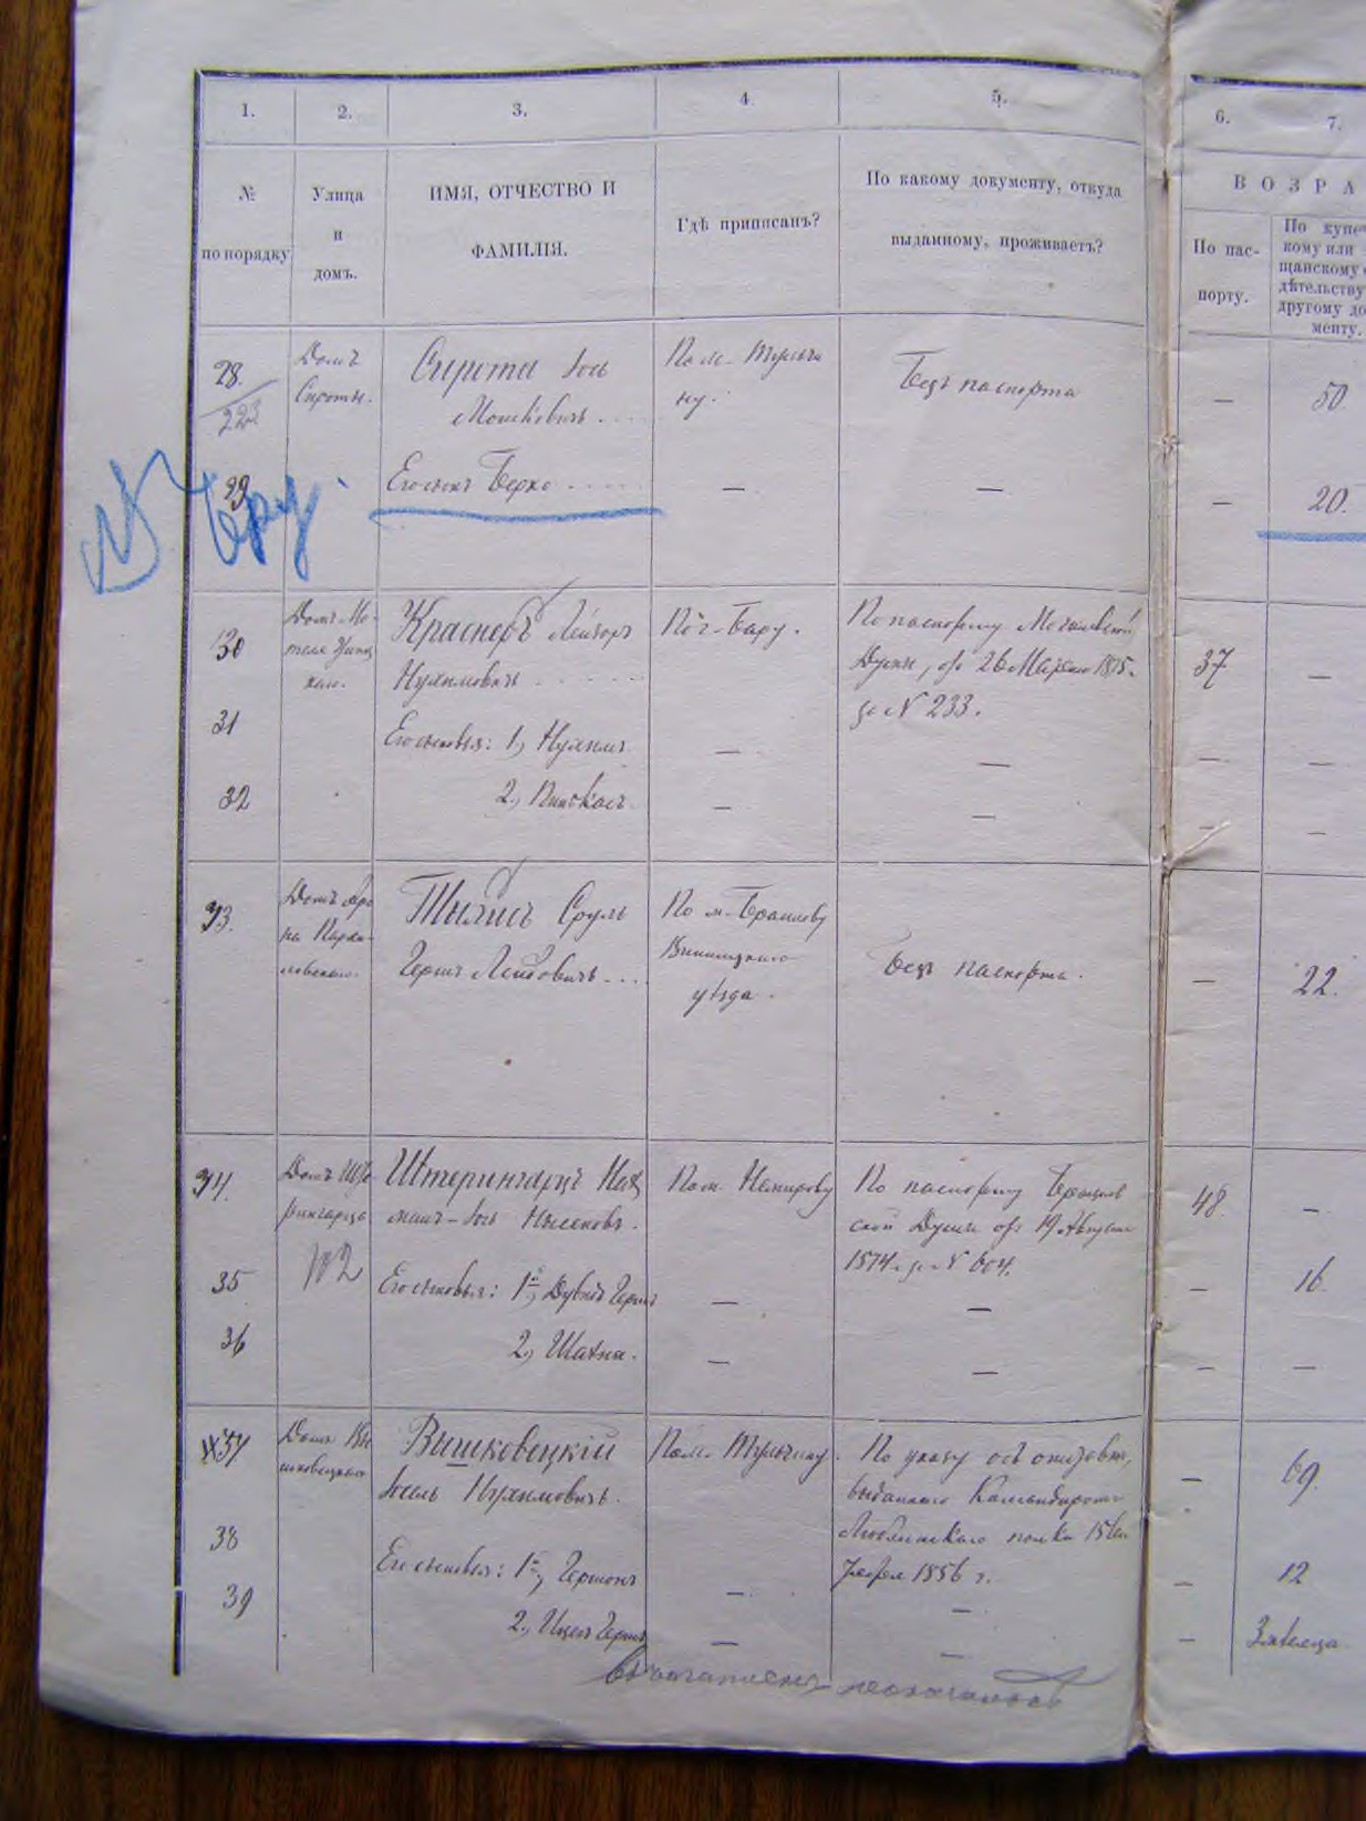 1.
2.
3.
4.
5.
6.
7.
№
по порядку
Улица
и
домъ.
ИМЯ, ОТЧЕСТВО И
ФАМИЛІЯ.
Гдѣ приписанъ?
По какому документу, откуда
выданному, проживаетъ?
ВОЗРА
По пас-
порту.
По купе
кому или
щанскому
дѣтельству
другому до
менту.
28.
223
Домъ
Сироты.
Сирота Іось
Мошковичъ . . . .
По м. Тульчи
ну.
Безъ паспорта
—
50.
29
Его сынъ Берко . . . . .
—
—
—
20.
30
Домъ Мо-
Краснеръ Лейзоръ
Нухимовичъ . . . . .
По г. Бару.
По паспорту Могилевской
Думы, отъ 26 Марта 1875 г.
за N 233.
37
—
31
Его сыновья: 1, Нухимъ
—
—
—
—
32
2, Пинхасъ
—
—
—
—
33.
Тылисъ Сруль
Гершъ Лейбовичъ . . . .
По м. Браилову
Винницкаго
уѣзда.
Безъ паспорта.
—
22.
34.
Домъ Ште
рингарца
102
Штерингарцъ Нах
манъ-Іось Нысеновъ.
По м. Немирову
По паспорту Брацлав
ской Думы отъ 19 Августа
1874 г. за N 604.
48
—
35
Его сыновья: 1, Дувидъ Гершъ
—
—
—
16
36
2, Шахна.
—
—
—
—
37
Домъ Вы
шковецкаго
Вышковецкій
Іосель Нухимовичъ.
По м. Тульчину.
По указу объ отставкѣ,
выданному Командиромъ
Люблинскаго полка 15
1856 г.
—
69.
38
Его сыновья: 1, Гершонъ
—
—
—
12
39
2, Ицекъ Гершъ
—
—
—
3 мѣсяца